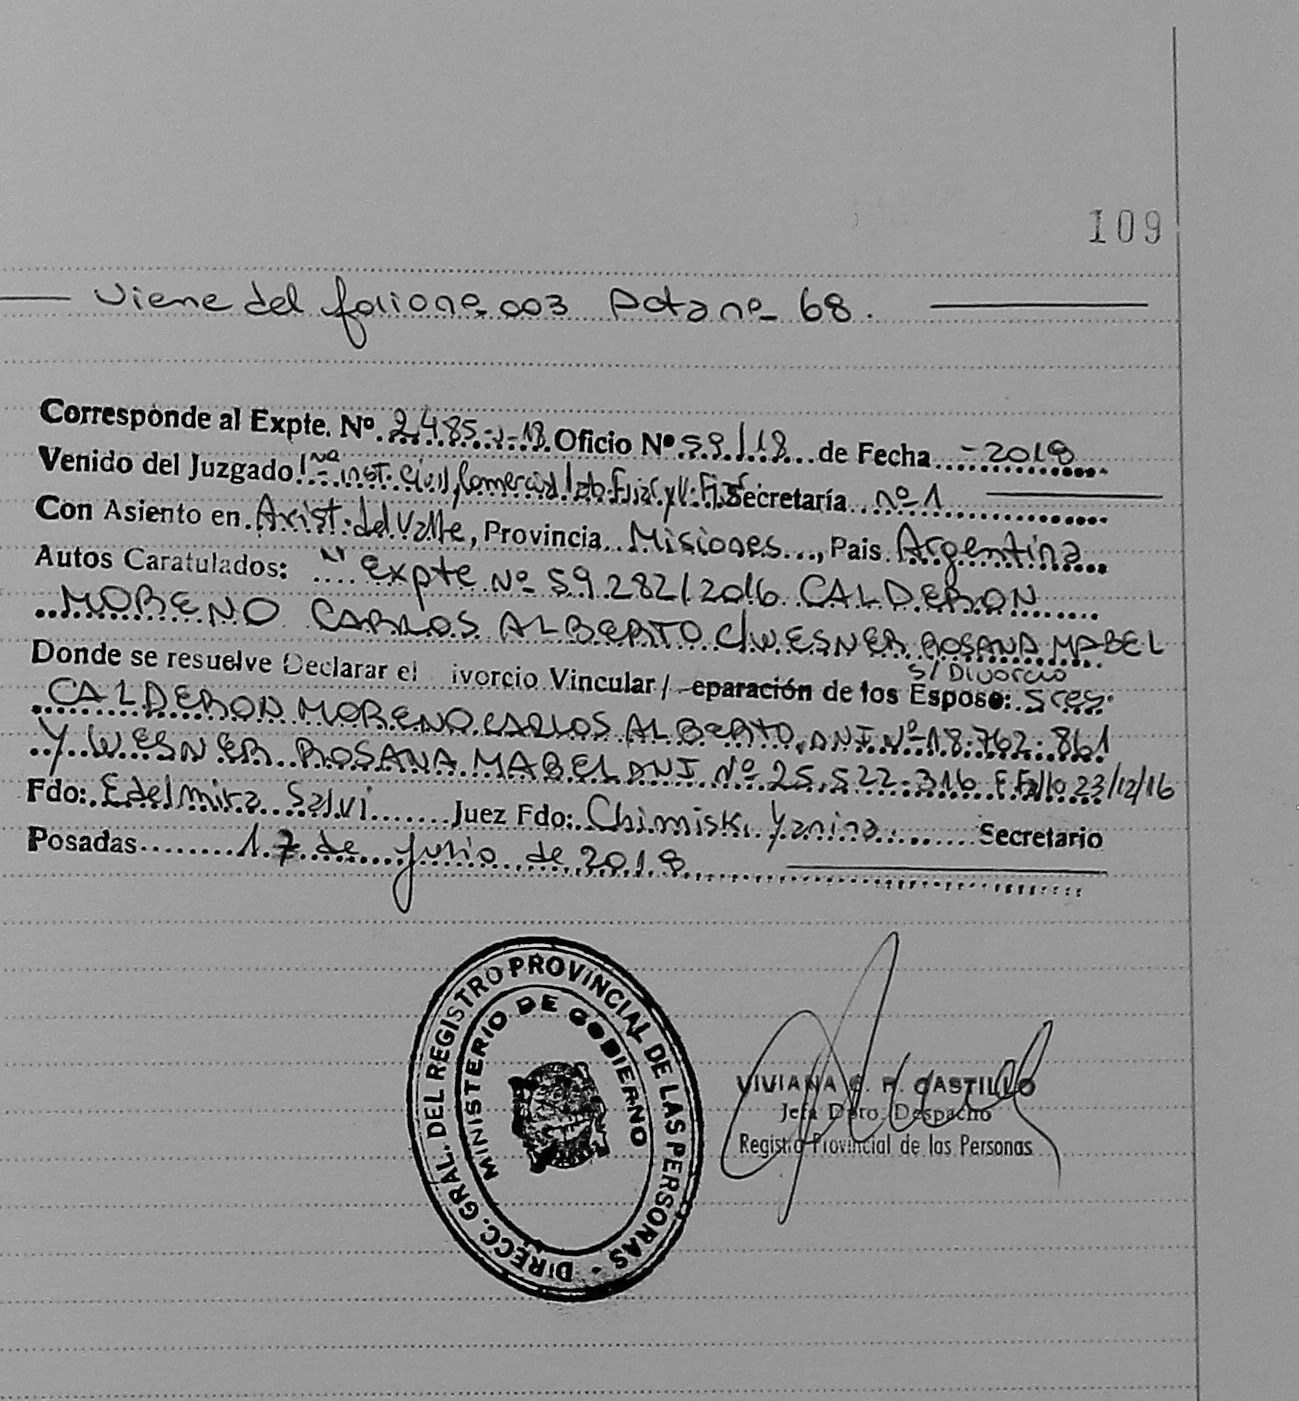 109
Viene del folio nº 003 Acta nº 68.
Corresponde al Expte. Nº 2485-J-18 Oficio Nº 59/18 de Fecha - 2018
Venido del Juzgado 1ra inst. Civil, Comercial, Lab. Secretaría nº 1
Con Asiento en Arist. del Valle, Provincia Misiones, Pais Argentina
Autos Caratulados: " Expte Nº 59.282/2016 CALDERON
MORENO CARLOS ALBERTO C/WESNER ROSANA MABEL
s/ Divorcio
Donde se resuelve Declarar el ivorcio Vincular / eparación de los Esposo: Sres.
CALDERON MORENO CARLOS ALBERTO, DNI Nº 18.762.861
Y WESNER ROSANA MABEL DNI Nº 25.522.316 F. Fallo 23/12/16
Fdo: Edelmira Salvi Juez Fdo: Chimiski Yanina Secretario
Posadas 17 de Julio de 2018
DIRECC. GRAL. DEL REGISTRO PROVINCIAL DE LAS PERSONAS -
MINISTERIO DE GOBIERNO
VIVIANA CASTILLO
Jefa Dpto. Despacho
Registro Provincial de las Personas